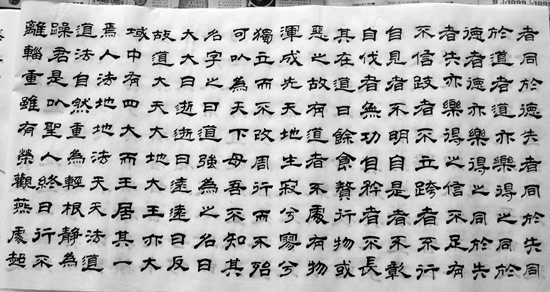 者同於德失者同於失同
於道者道亦樂得之同於
德者德亦樂得之同於失
者失亦樂得之信不足有
不信跂者不立跨者不行
自見者不明自是者不彰
自伐者無功自矜者不長
其在道曰餘食贅行物或
惡之故有道者不處有物
渾成先天地生寂兮寥兮
獨立而不改周行而不殆
可以為天下母吾不知其
名字之曰道強為之名曰
大大曰逝逝曰遠遠曰反
故道大天大地大王亦大
域中有四大而王居其一
焉人法地地法天天法道
道法自然重為輕根靜為
躁君是以聖人終日行不
離輜重雖有榮觀燕處超